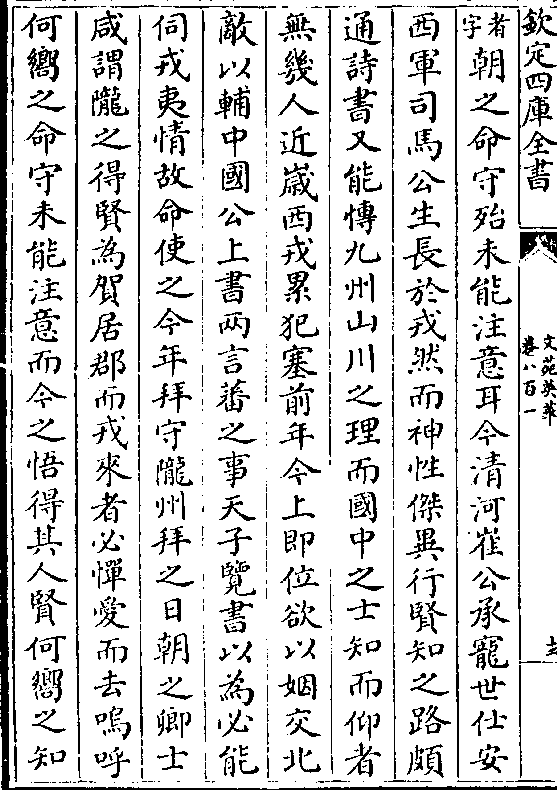 欽定四庫全書
文苑英華
卷八百一
字者朝之命守殆未能注意耳今清河崔公承寵世仕安
西軍司馬公生長於戎然而神性傑異行賢知之路頗
通詩書又能慱九州山川之理而國中之士知而仰者
無幾人近歲西戎累犯塞前年今上即位欲以姻交北
敵以輔中國公上書两言蕃之事天子覽書以為必能
伺戎夷情故命使之今年拜守隴州拜之日朝之卿士
咸謂隴之得賢為賀居郡而戎來者必憚愛而去嗚呼
何嚮之命守未能注意而今之悟得其人賢何嚮之知